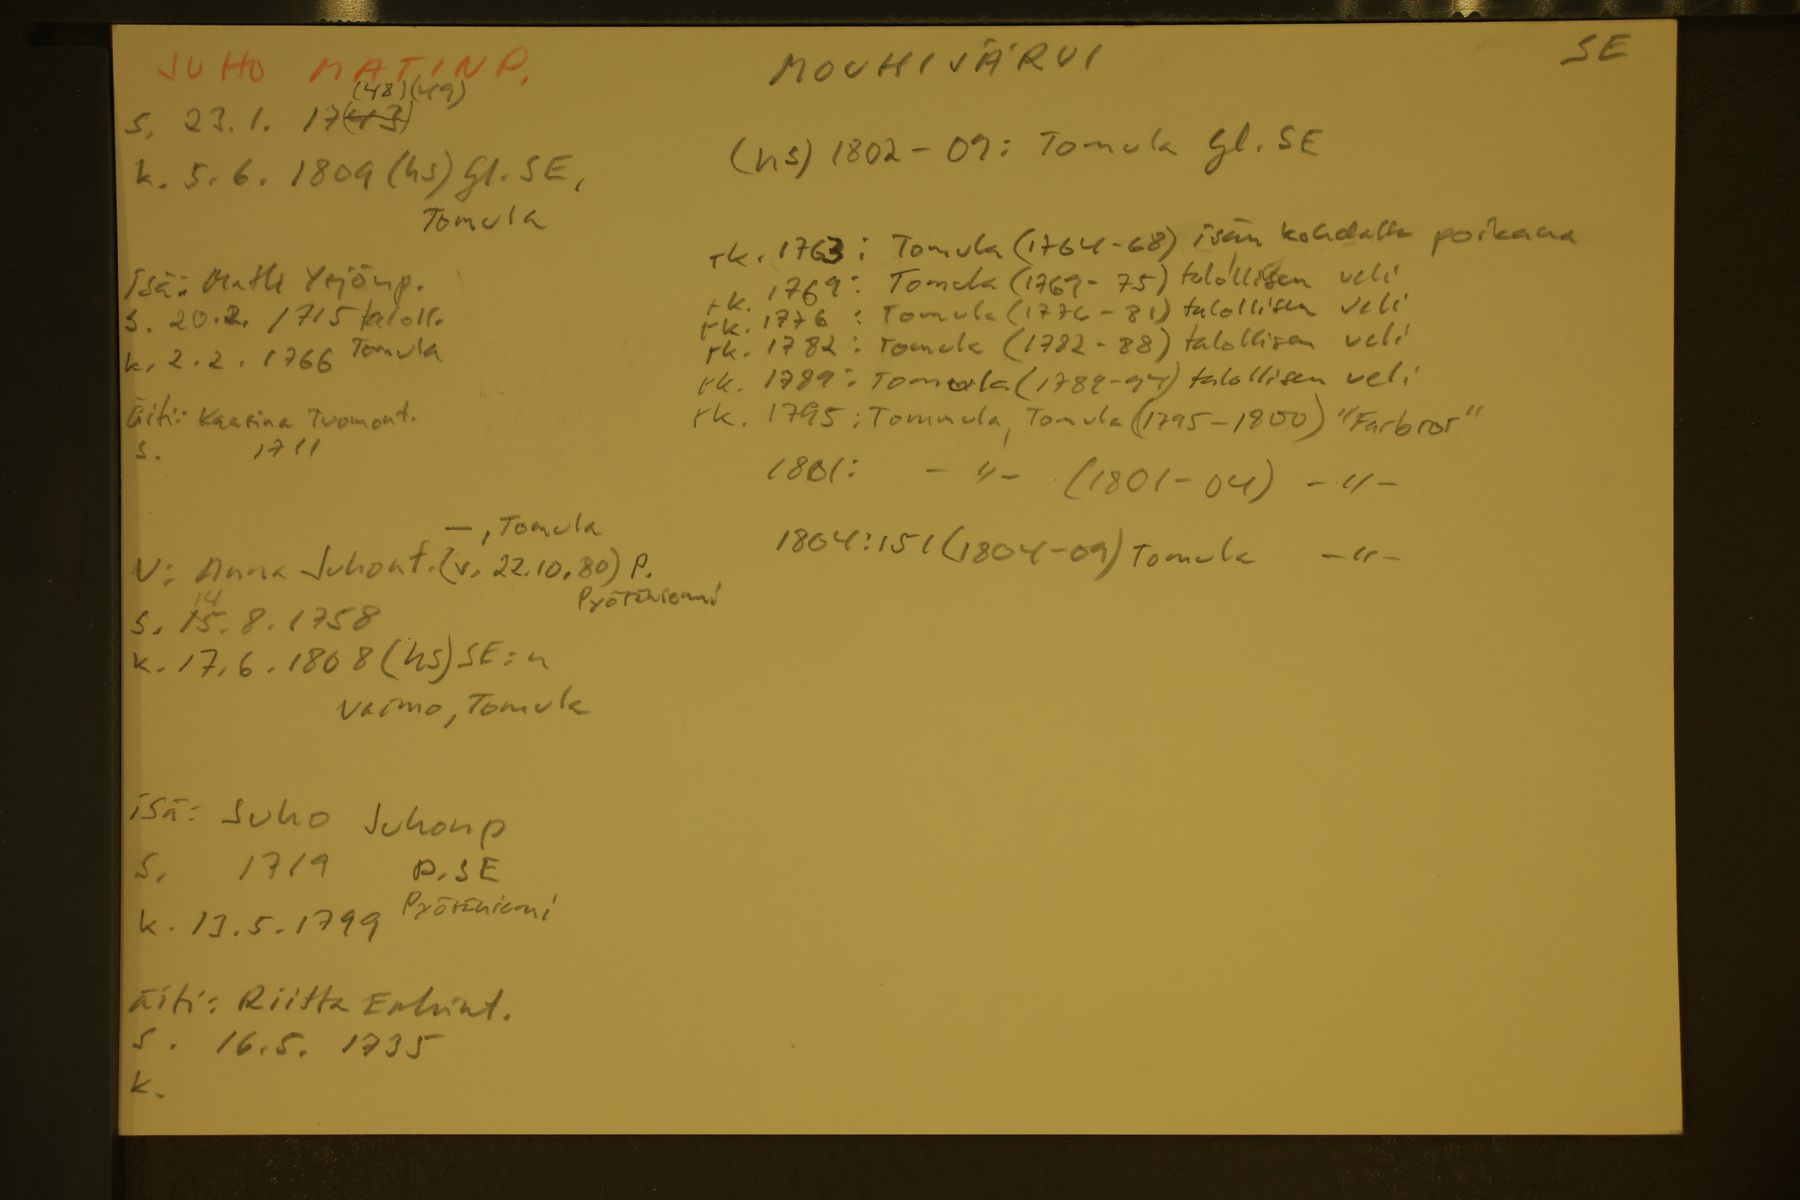 JUHO MATINP.
MOUHIJÄRVI
SE
(48)(49)
s. 23.1. 17(43)
k. 5.6. 1809 (hs) Gl. SE,
Tomula
(hs) 1802-09: Tomula Gl. SE
isä: Matti Yrjönp.
s. 20.2. 1715 taloll.
k. 2.2. 1766 Tomula
äiti: Kaarina Tuomont.
s. 1711
rk. 1763: Tomula (1764-68) isän kohdalla poikana
rk. 1769: Tomula (1769-75) talollisen veli
rk. 1776: Tomula (1776-81) talollisen veli
rk. 1782: Tomula (1782-88) talollisen veli
rk. 1789: Tomula (1789-94) talollisen veli
rk. 1795: Tommula, Tomula (1795-1800) "Farbror"
1801: -"- (1801-04) -"-
1804: 151 (1804-09) Tomula -"-
-, Tomula
V: Anna Juhont. (v. 22.10.80) P.
Pyöröniemi
14
s. 15.8.1758
k. 17.6.1808 (hs) SE:n
vaimo, Tomula
isä: Juho Juhonp
s. 1719 P. SE
k. 13.5.1799 Pyöröniemi
äiti: Riitta Erkint.
s. 16.5. 1735
k.